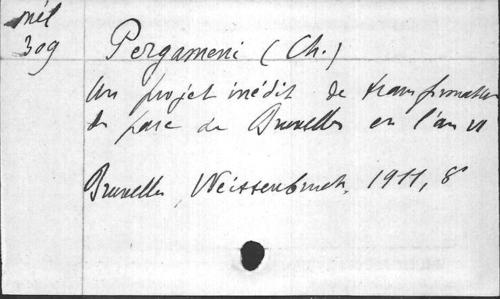 mél
309
Pergameni (Ch.)
Un projet inédit de transformation
du parc de Bruxelles en l'an VI
Bruxelles, Weissenbruch, 1911, 8°